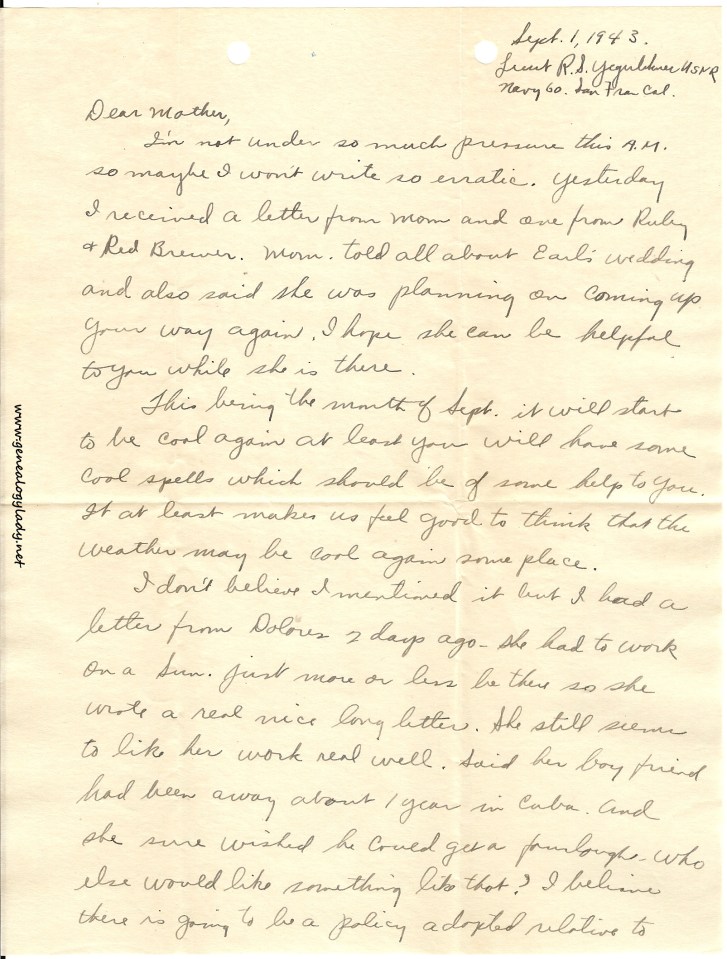 Sept. 1, 1943.
Lieut R. S. Yegerlehner USNR
Navy 60. San Fran Cal.
Dear Mother,
I'm not under so much pressure this A.M.
so maybe I won't write so erratic. Yesterday
I received a letter from Mom and one from Ruby
+ Red Brewer. Mom. told all about Earl's wedding
and also said she was planning on coming up
your way again. I hope she can be helpful
to you while she is there.
This being the month of Sept. it will start
to be cool again at least you will have some
cool spells which should be of some help to you.
It at least makes us feel good to think that the
weather may be cool again some place.
I don't believe I mentioned it but I had a
letter from Dolores 2 days ago - she had to work
on a Sun. just more or less be there so she
wrote a real nice long letter. She still seems
to like her work real well. Said her boy friend
had been away about 1 year in Cuba. And
she sure wished he could get a fourlough - who
else would like something like that? I believe
there is going to be a policy adopted relative to
www.genealogylady.net